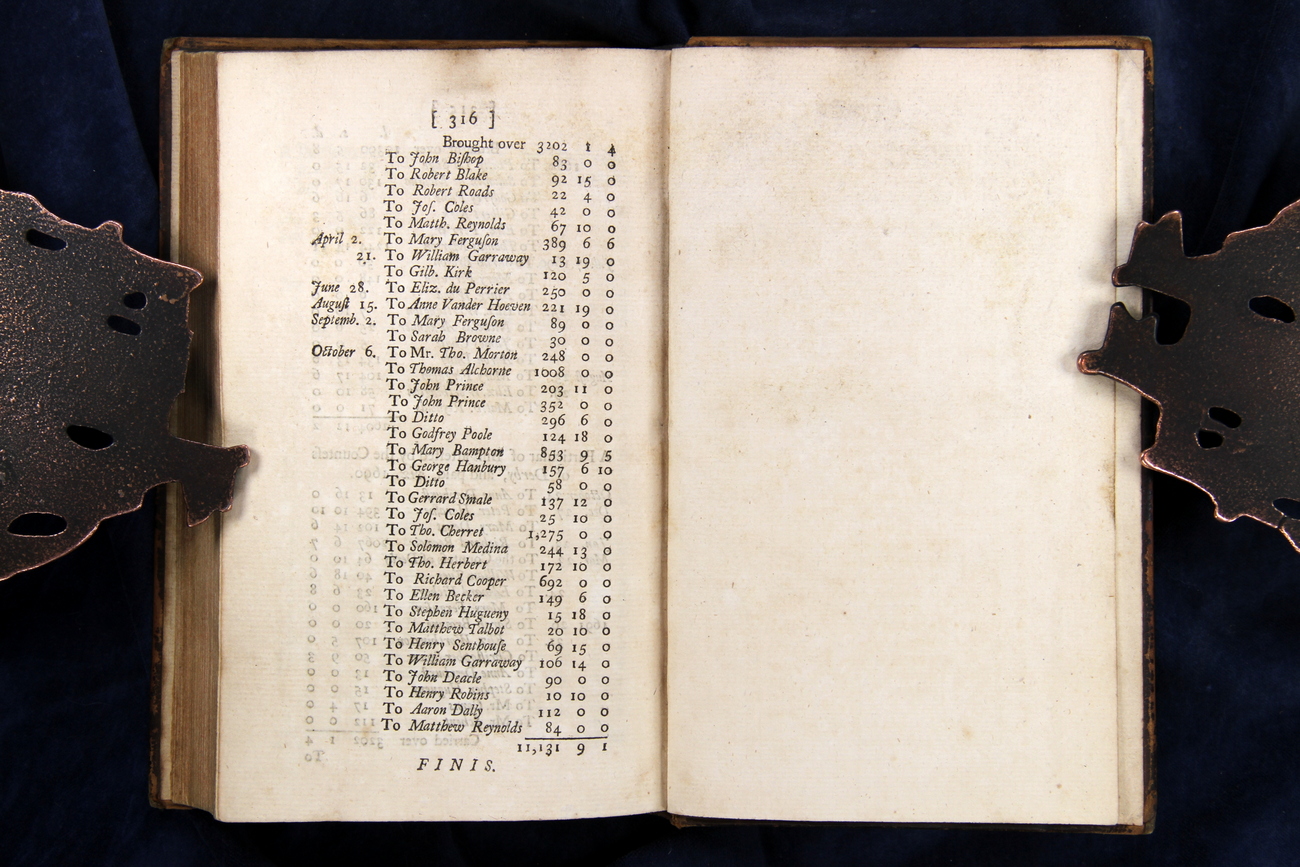 [ 316 ]
Brought over 3202 1 4
To John Biſhop 83 0 0
To Robert Blake 92 15 0
To Robert Roads 22 4 0
To Joſ. Coles 42 0 0
To Matth. Reynolds 67 10 0
April 2. To Mary Ferguſon 389 6 6
21. To William Garraway 13 19 0
To Gilb. Kirk 120 5 0
June 28. To Eliz. du Perrier 250 0 0
Auguſt 15. To Anne Vander Hoeven 221 19 0
Septemb. 2. To Mary Ferguſon 89 0 0
To Sarah Browne 30 0 0
October 6. To Mr. Tho. Morton 248 0 0
To Thomas Alchorne 1008 0 0
To John Prince 203 11 0
To John Prince 352 0 0
To Ditto 296 6 0
To Godfrey Poole 124 18 0
To Mary Bampton 853 9 5
To George Hanbury 157 6 10
To Ditto 58 0 0
To Gerrard Smale 137 12 0
To Joſ. Coles 25 10 0
To Tho. Cherret 1,275 0 0
To Solomon Medina 244 13 0
To Tho. Herbert 172 10 0
To Richard Cooper 692 0 0
To Ellen Becker 149 6 0
To Stephen Hugueny 15 18 0
To Matthew Talbot 20 10 0
To Henry Senthouſe 69 15 0
To William Garraway 106 14 0
To John Deacle 90 0 0
To Henry Robins 10 10 0
To Aaron Dally 112 0 0
To Matthew Reynolds 84 0 0
11,131 9 1
FINIS.